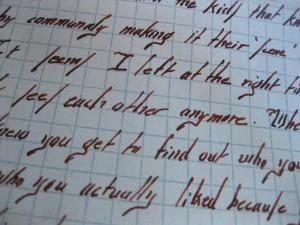 the kids that kn
by commonly making it their 'scene'
It seems I left at the right ti
see each other anymore. Whe
you get to find out who you
who you actually liked because